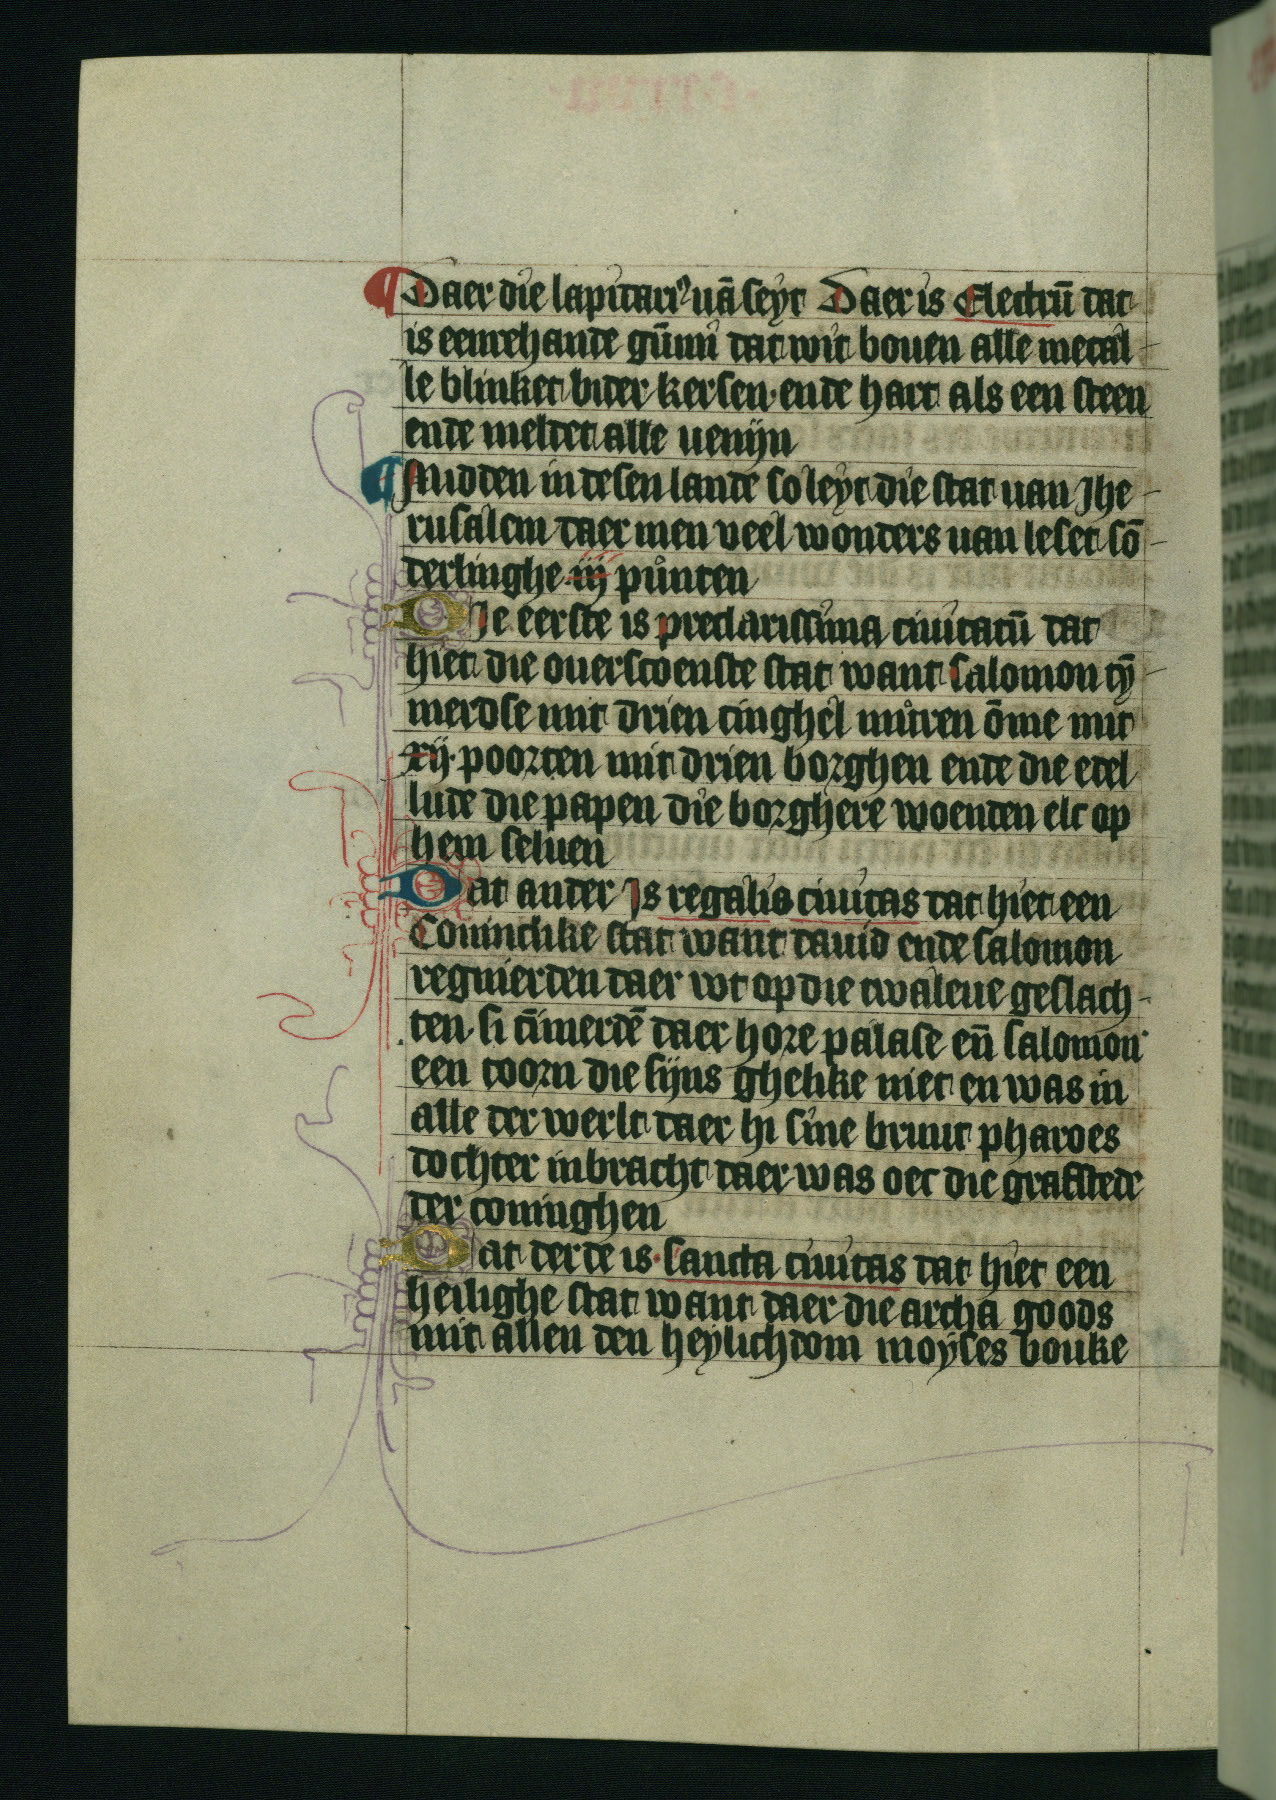 ¶ Daer die lapidari⁹ uā seyt Daer is Electrū dat
is eenrehande gūmi dat wit bouen alle metal
le blinket biter kersen· ende hart als een steen
ende meldet alle uenijn
¶ Midden in desen lande so leyt die stat uan Jhe
rusalem daer men veel wonders uan leset sō
derlinghe iiij pùnten
Die eerste is preclarissima ciuitatū dat
hiet die ouerscoenste stat want salomon tȳ
merdse mit drien cinghel mùren ōme mit
xij· poorten mit drien borghen ende die edel
lude die papen die borghere woenden elc op
hem seluen
Dat ander Js regalis ciuitas dat hiet een
Conincklike stat want dauid ende salomon
regnierden daer wt op die twaleue geslach
ten· si tīmerdē daer hore palase eñ salomon
een toorn die sijns ghelike niet en was in
alle der werlt daer hi sine bruut pharoes
dochter inbracht daer was oec die grafstede
der coninghen
Dat derde is· sancta ciuitas dat hiet een
heilighe stat want daer die archa goods
mit allen den heylichdom moyses bouke